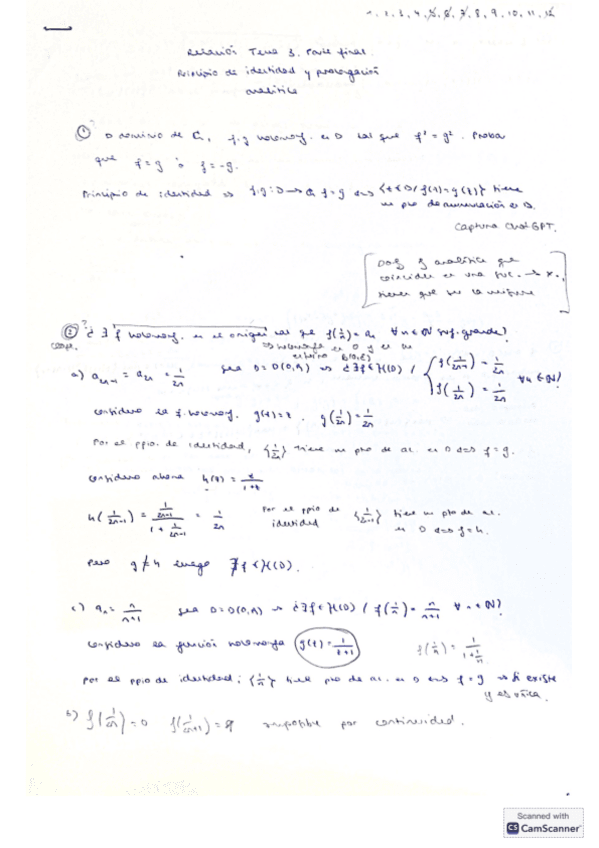 1, 2, 3, 4, 5, 6, 7, 8, 9, 10, 11, 12
Relación Tema 3. Parte final.
Principio de identidad y prolongación
analítica
1 D dominio de ℂ, f, g holomorf. en D tal que f² = g². Proba
que f = g ó f = -g.
Principio de identidad ⇒ f, g: D → ℂ, f = g ⟺ {z ∈ D / f(z) = g(z)} tiene
un pto de acumulación en D.
Captura ChatGPT.
Dos f analítica que
coinciden en una suc. → x₀,
tienen que ser la misma
2 ¿∃ f holomorf. en el origen tal que f(1/n) = aₙ ∀n ∈ ℕ suf. grande?
⇒ holomorfa en 0 y en un
entorno B(0,ε)
a) a₂ₙ₋₁ = a₂ₙ = 1/2n sea D = D(0,R) ⇒ ¿∃ f ∈ H(D) / { f(1/2n-1) = 1/2n
f(1/2n) = 1/2n ∀n ∈ ℕ?
Considero la f. holomorf. g(z) = z. g(1/2n) = 1/2n
Por el ppio. de identidad, {1/2n} tiene un pto de ac. en 0 ⟹ f = g.
Considero ahora h(z) = z/1+z
h(1/2n-1) = 1/2n-1 / 1 + 1/2n-1 = 1/2n Por el ppio de identidad {1/2n-1} tiene un pto de ac.
en 0 ⟹ f = h.
Pero g ≠ h luego ∄ f ∈ H(D).
c) aₙ = n/n+1 sea D = D(0,R) ⇒ ¿∃ f ∈ H(D) / f(1/n) = n/n+1 ∀n ∈ ℕ?
Considero la función holomorfa g(z) = 1/z+1 f(1/n) = 1/1+1/n
Por el ppio de identidad, {1/n} tiene pto de ac. en 0 ⟹ f = g ⇒ Si existe
y es única.
b) f(1/2n) = 0 f(1/2n+1) = 1 imposible por continuidad.
Scanned with
CS CamScanner